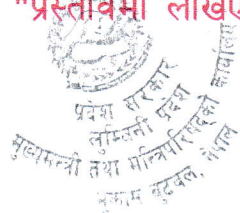 "प्रस्तावमा लेखिए
प्रदेश सरकार
लुम्बिनी प्रदेश
मुख्यमन्त्री तथा मन्त्रिपरिषद्को कार्यालय
मुकाम बुटवल, नेपाल